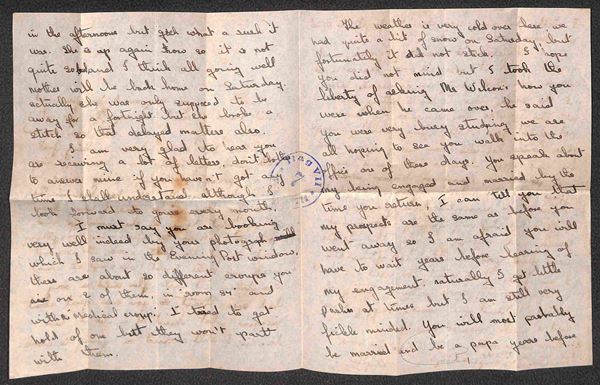 in the afternoons but gosh what a rush it
was. She is up again now so it is not
quite so bad and I think all going well
mother will be back home on Saturday.
actually she was only supposed to be
away for a fortnight but she broke a
stitch so that delayed matters also.
I am very glad to hear you
are receiving a lot of letters, don't bother
to answer mine if you haven't got any
time I shall understand although I
look forward to yours every month.
I must say you are looking
very well indeed by your photograph
which I saw in the Evening Post window.
there are about 20 different groups you
are on 2 of them, in "room 54" and
with a medical group. I tried to get
hold of one but they won't part
with them.
The weather is very cold over here, we
had quite a bit of snow on Saturday but
fortunately it did not stick. I hope
you did not mind but I took the
liberty of asking Mr Wilcox how you
were when he came over, he said
you were very busy studying, we are
all hoping to see you walk into the
office one of these days. You speak about
my being engaged and married by the
time you return, I can tell you that
my prospects are the same as before you
went away so I am afraid you will
have to wait years before hearing of
my engagement, naturally I get little
at times but I am still very
feeble minded. You will most probably
be married and be a papa years before
VII